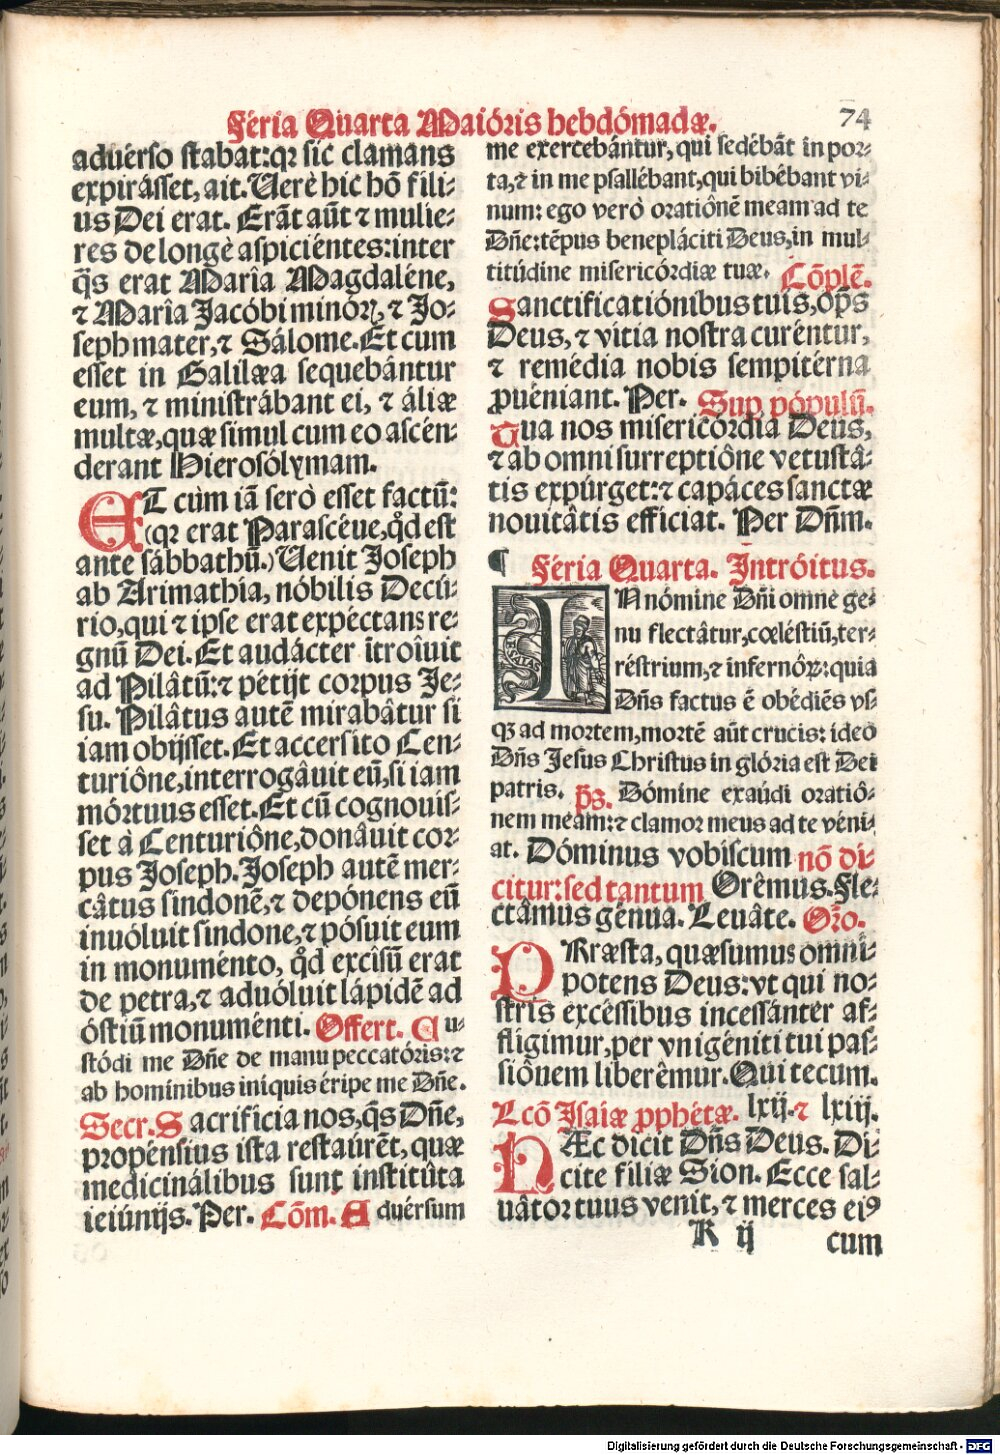 Féria Quarta Maióris hebdómadæ. 74
aduérso stabat: qꝛ sic clamans
expirásset, ait. Uerè hic hõ fili⸗
us Dei erat. Erãt aũt ⁊ mulie⸗
res de longè aspiciéntes: inter
q̃s erat Marîa Magdaléne,
⁊ Marîa Jacóbi minóꝝ, ⁊ Jo⸗
seph mater, ⁊ Sálome. Et cum
esset in Galilæa sequebántur
eum, ⁊ ministrábant ei, ⁊ áliæ
multæ, quæ simul cum eo ascén⸗
derant Hierosólymam.
ET cùm iã serò esset factũ:
(qꝛ erat Parascéue, q̊d est
ante sábbathũ.) Uenit Joseph
ab Arimathia, nóbilis Decú⸗
rio, qui ⁊ ipse erat expéctans re⸗
gnũ Dei. Et audácter ĩtroîuit
ad Pilâtũ: ⁊ pétijt corpus Je⸗
su. Pilâtus autẽ mirabâtur si
iam obijsset. Et accersito Cen⸗
turiône, interrogâuit eũ, si iam
mórtuus esset. Et cũ cognouis⸗
set à Centuriône, donâuit cor⸗
pus Joseph. Joseph autẽ mer⸗
câtus síndonẽ, ⁊ depónens eũ
inuóluit síndone, ⁊ pósuit eum
in monuménto, q̊d excîsũ erat
de petra, ⁊ aduóluit lápidẽ ad
óstiũ monuménti. Offert. Cu⸗
stódi me Dñe de manu peccatóris: ⁊
ab hominibus iniquis éripe me Dñe.
Secr. Sacrificia nos, q̃s Dñe,
propénsius ista restaúrẽt, quæ
medicinálibus sunt institûta
ieiúnijs. Per. Cõm. Aduérsum
me exercebántur, qui sedébãt in por⸗
ta, ⁊ in me psallébant, qui bibébant vi⸗
num: ego verò oratiônẽ meam ad te
Dñe: tẽpus beneplácíti Deus, in mul⸗
titúdine misericórdiæ tuæ. Cõplẽ.
Sanctificatiónibus tuis, op̃s
Deus, ⁊ vitia nostra curéntur,
⁊ remédia nobis sempitérna
ꝓuéniant. Per. Sup pópulũ.
Tua nos misericórdia Deus,
⁊ ab omni surreptiône vetustâ⸗
tis expúrget: ⁊ capáces sanctæ
nouitâtis efficiat. Per Dñm.
¶ Féria Quarta. Intróitus.
IN nómine Dñi omne ge⸗
nu flectâtur, cœléstiũ, ter⸗
réstrium, ⁊ infernôꝝ: quia
Dñs factus ẽ obédiẽs vs⸗
qꝫ ad mortem, mortẽ aũt crucis: ideo
Dñs Jesus Christus in glória est Dei
patris. p̃s. Dómine exaúdi oratiô⸗
nem meam: ⁊ clamor meus ad te véni⸗
at. Dóminus vobiscum nõ di⸗
citur: sed tantum Orêmus. Fle⸗
ctâmus génua. Leuâte. Oro.
PRæsta, quæsumus omni⸗
potens Deus: vt qui no⸗
stris excéssibus incessánter af⸗
flígimur, per vnigéniti tui pas⸗
siônem liberêmur. Qui tecum.
Lcõ Isaiæ ꝓphétæ. lxij. ⁊ lxiij.
HÆc dicit Dñs Deus. Di⸗
cite filiæ Sion. Ecce sal⸗
uâtor tuus venit, ⁊ merces eiꝰ
K ij cum
Digitalisierung gefördert durch die Deutsche Forschungsgemeinschaft - DFG